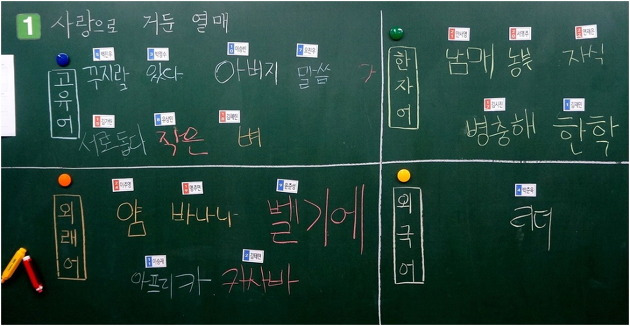 1 사랑으로 거둔 열매
고유어
꾸지람 왔다 아버지 말씀
서로돕다 작은 벼
한자어
남매 농부 자식
병충해 한학
외래어
얌 바나나 벨기에
아프리카 카사바
외국어
리더